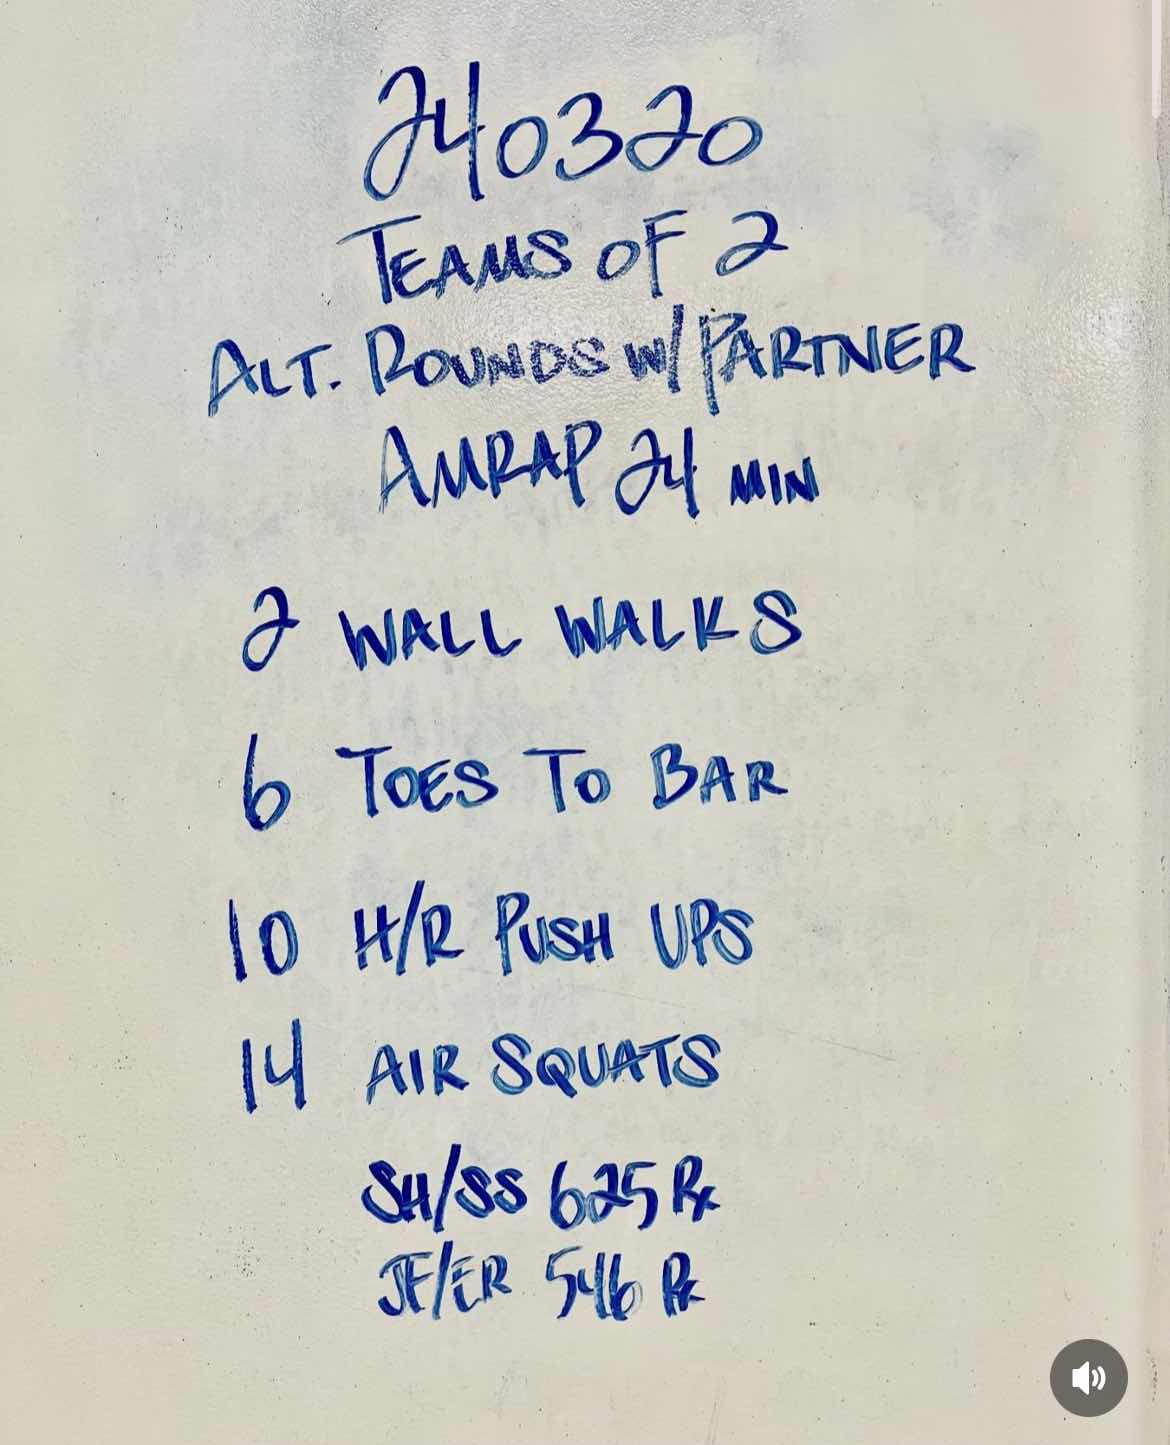 240320
TEAMS OF 2
ALT. ROUNDS W/ PARTNER
AMRAP 24 MIN
2 WALL WALKS
6 TOES TO BAR
10 H/R PUSH UPS
14 AIR SQUATS
SH/SS 625 Rx
JF/ER 546 Rx